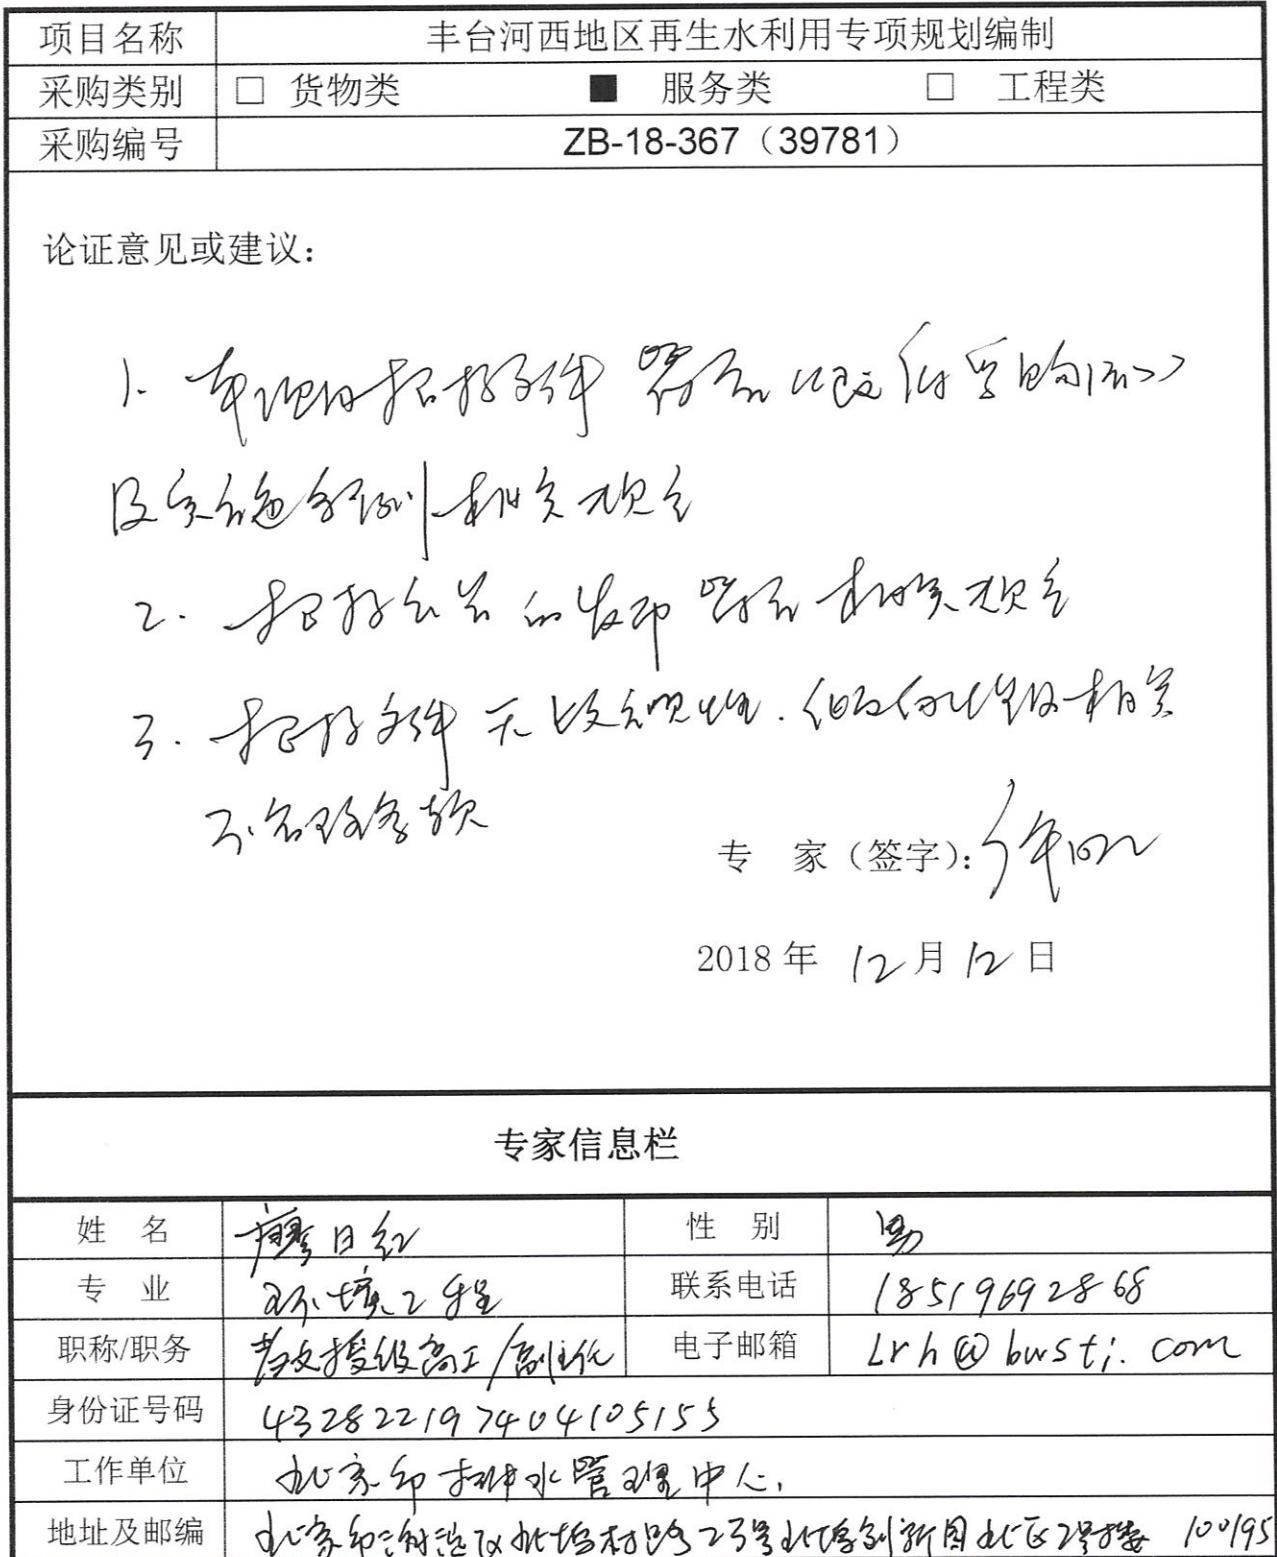 项目名称 丰台河西地区再生水利用专项规划编制
采购类别 □ 货物类 ■ 服务类 □ 工程类
采购编号 ZB-18-367（39781）
论证意见或建议：
1. 本项目招标文件符合《政府采购法》
及实施条例相关规定
2. 招标公告的发布符合相关规定
3. 招标文件无歧视性、倾向性及相关
不合理条款
专 家（签字）：
2018 年 12 月 12 日
专家信息栏
姓 名 廖日红 性 别 男
专 业 环境工程 联系电话 18519692868
职称/职务 教授级高工/副主任 电子邮箱 Lrh@bwsti.com
身份证号码 432822197404105155
工作单位 北京市排水管理中心
地址及邮编 北京市海淀区北坞村路23号北坞创新园北区2号楼 100195